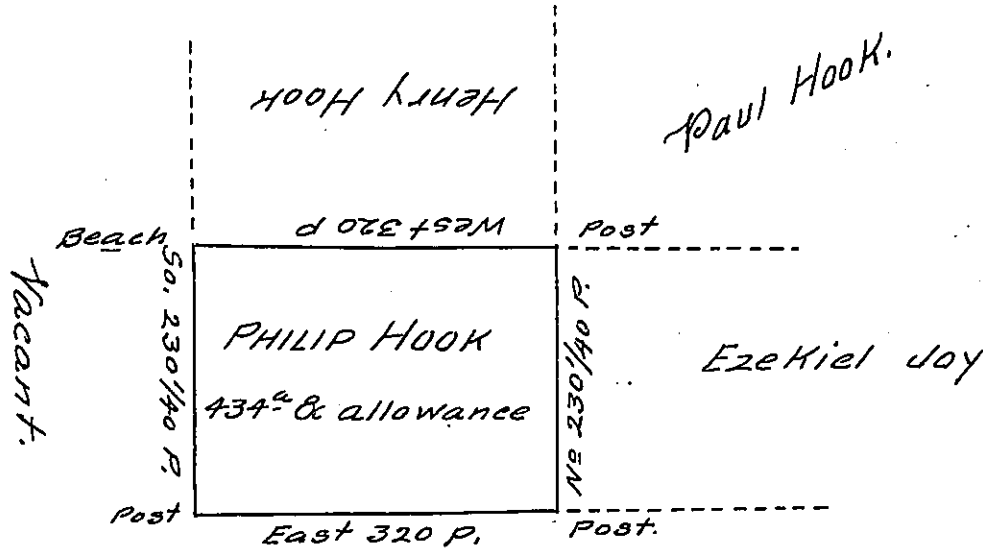 Henry Hook
Paul Hook.
West 320 P
Beach
Post
Vacant.
So. 230 1/40 P.
PHILIP HOOK
434a & allowance
No 230 1/40 P.
Ezekiel Joy
Post
East 320 P.
Post.